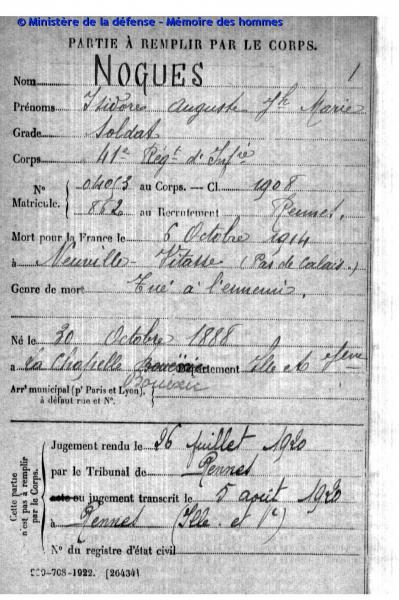 © Ministère de la défense - Mémoire des hommes
PARTIE À REMPLIR PAR LE CORPS.
Nom NOGUES 1
Prénoms Isidore Auguste Jh Marie
Grade Soldat
Corps 41e Régt d'Infie
N° 04013 au Corps. — Cl. 1908
Matricule. 862 au Recrutement Rennes.
Mort pour la France le 6 Octobre 1914
à Neuville-Vitasse (Pas de Calais.)
Genre de mort Tué à l'ennemi.
Né le 20 Octobre 1888
à La Chapelle Département Ille et Vilaine
Bouëxic
Arrt municipal (pr Paris et Lyon),
à défaut rue et N°.
Cette partie
n'est pas à remplir
par le Corps.
Jugement rendu le 26 juillet 1920
par le Tribunal de Rennes
acte ou jugement transcrit le 5 août 1920
à Rennes (Ille et Ve)
N° du registre d'état civil
-708-1922. [26434]